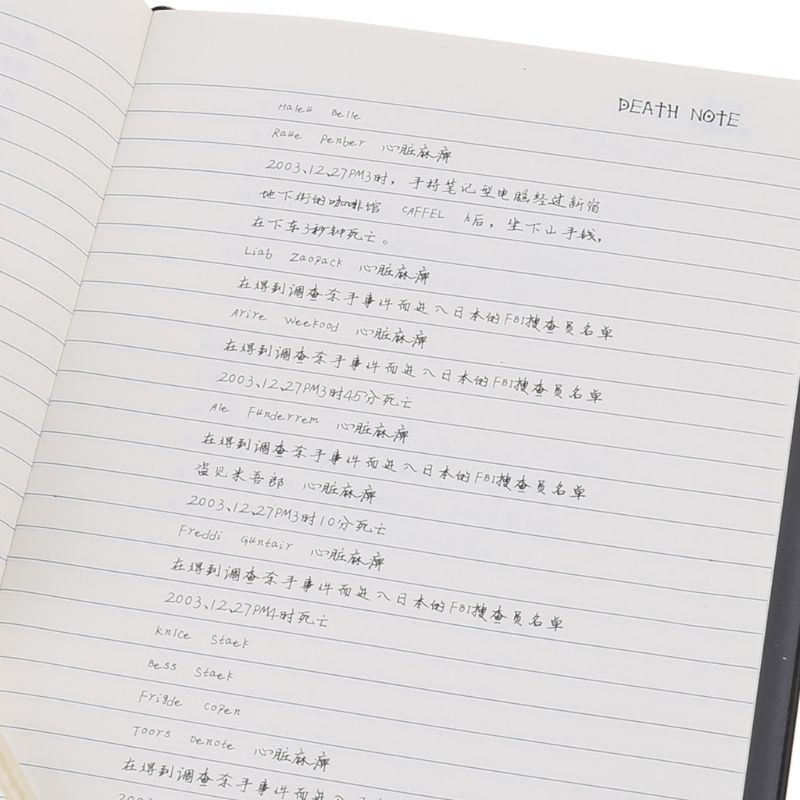 DEATH NOTE
Malek Belle
Raue Penber 心脏麻痹
2003、12、27PM3时，手持笔记型电脑经过新宿
地下街的咖啡馆 CAFFEL h后，坐下山手钱，
在下车3秒钟死亡。
Liab Zaopack 心脏麻痹
在得到调查杀手事件而进入日本的FBI搜查员名单
Arire Weekood 心脏麻痹
在得到调查杀手事件而进入日本的FBI搜查员名单
2003、12、27PM3时45分死亡
Ale Funderrem 心脏麻痹
在得到调查杀手事件而进入日本的FBI搜查员名单
盗见米吾郎 心脏麻痹
2003、12、27PM3时10分死亡
Freddi Guntair 心脏麻痹
在得到调查杀手事件而进入日本的FBI搜查员名单
2003、12、27PM4时死亡
Knice Staek
Bess Staek
Frigde Copen
Toors Denote 心脏麻痹
在得到调查杀手事件而进入日本的FBI搜查员名单